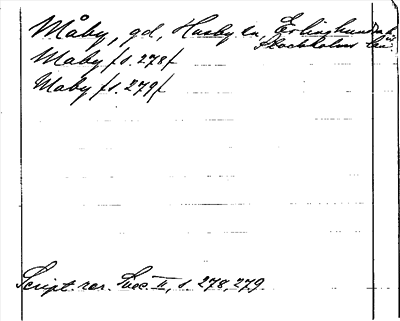 Måby, gd, Husby sn, Erlinghundra hd
Stockholms län
Maby fs. 278f
Maby fs. 279f
Script. rer. Svec. II, s. 278, 279.